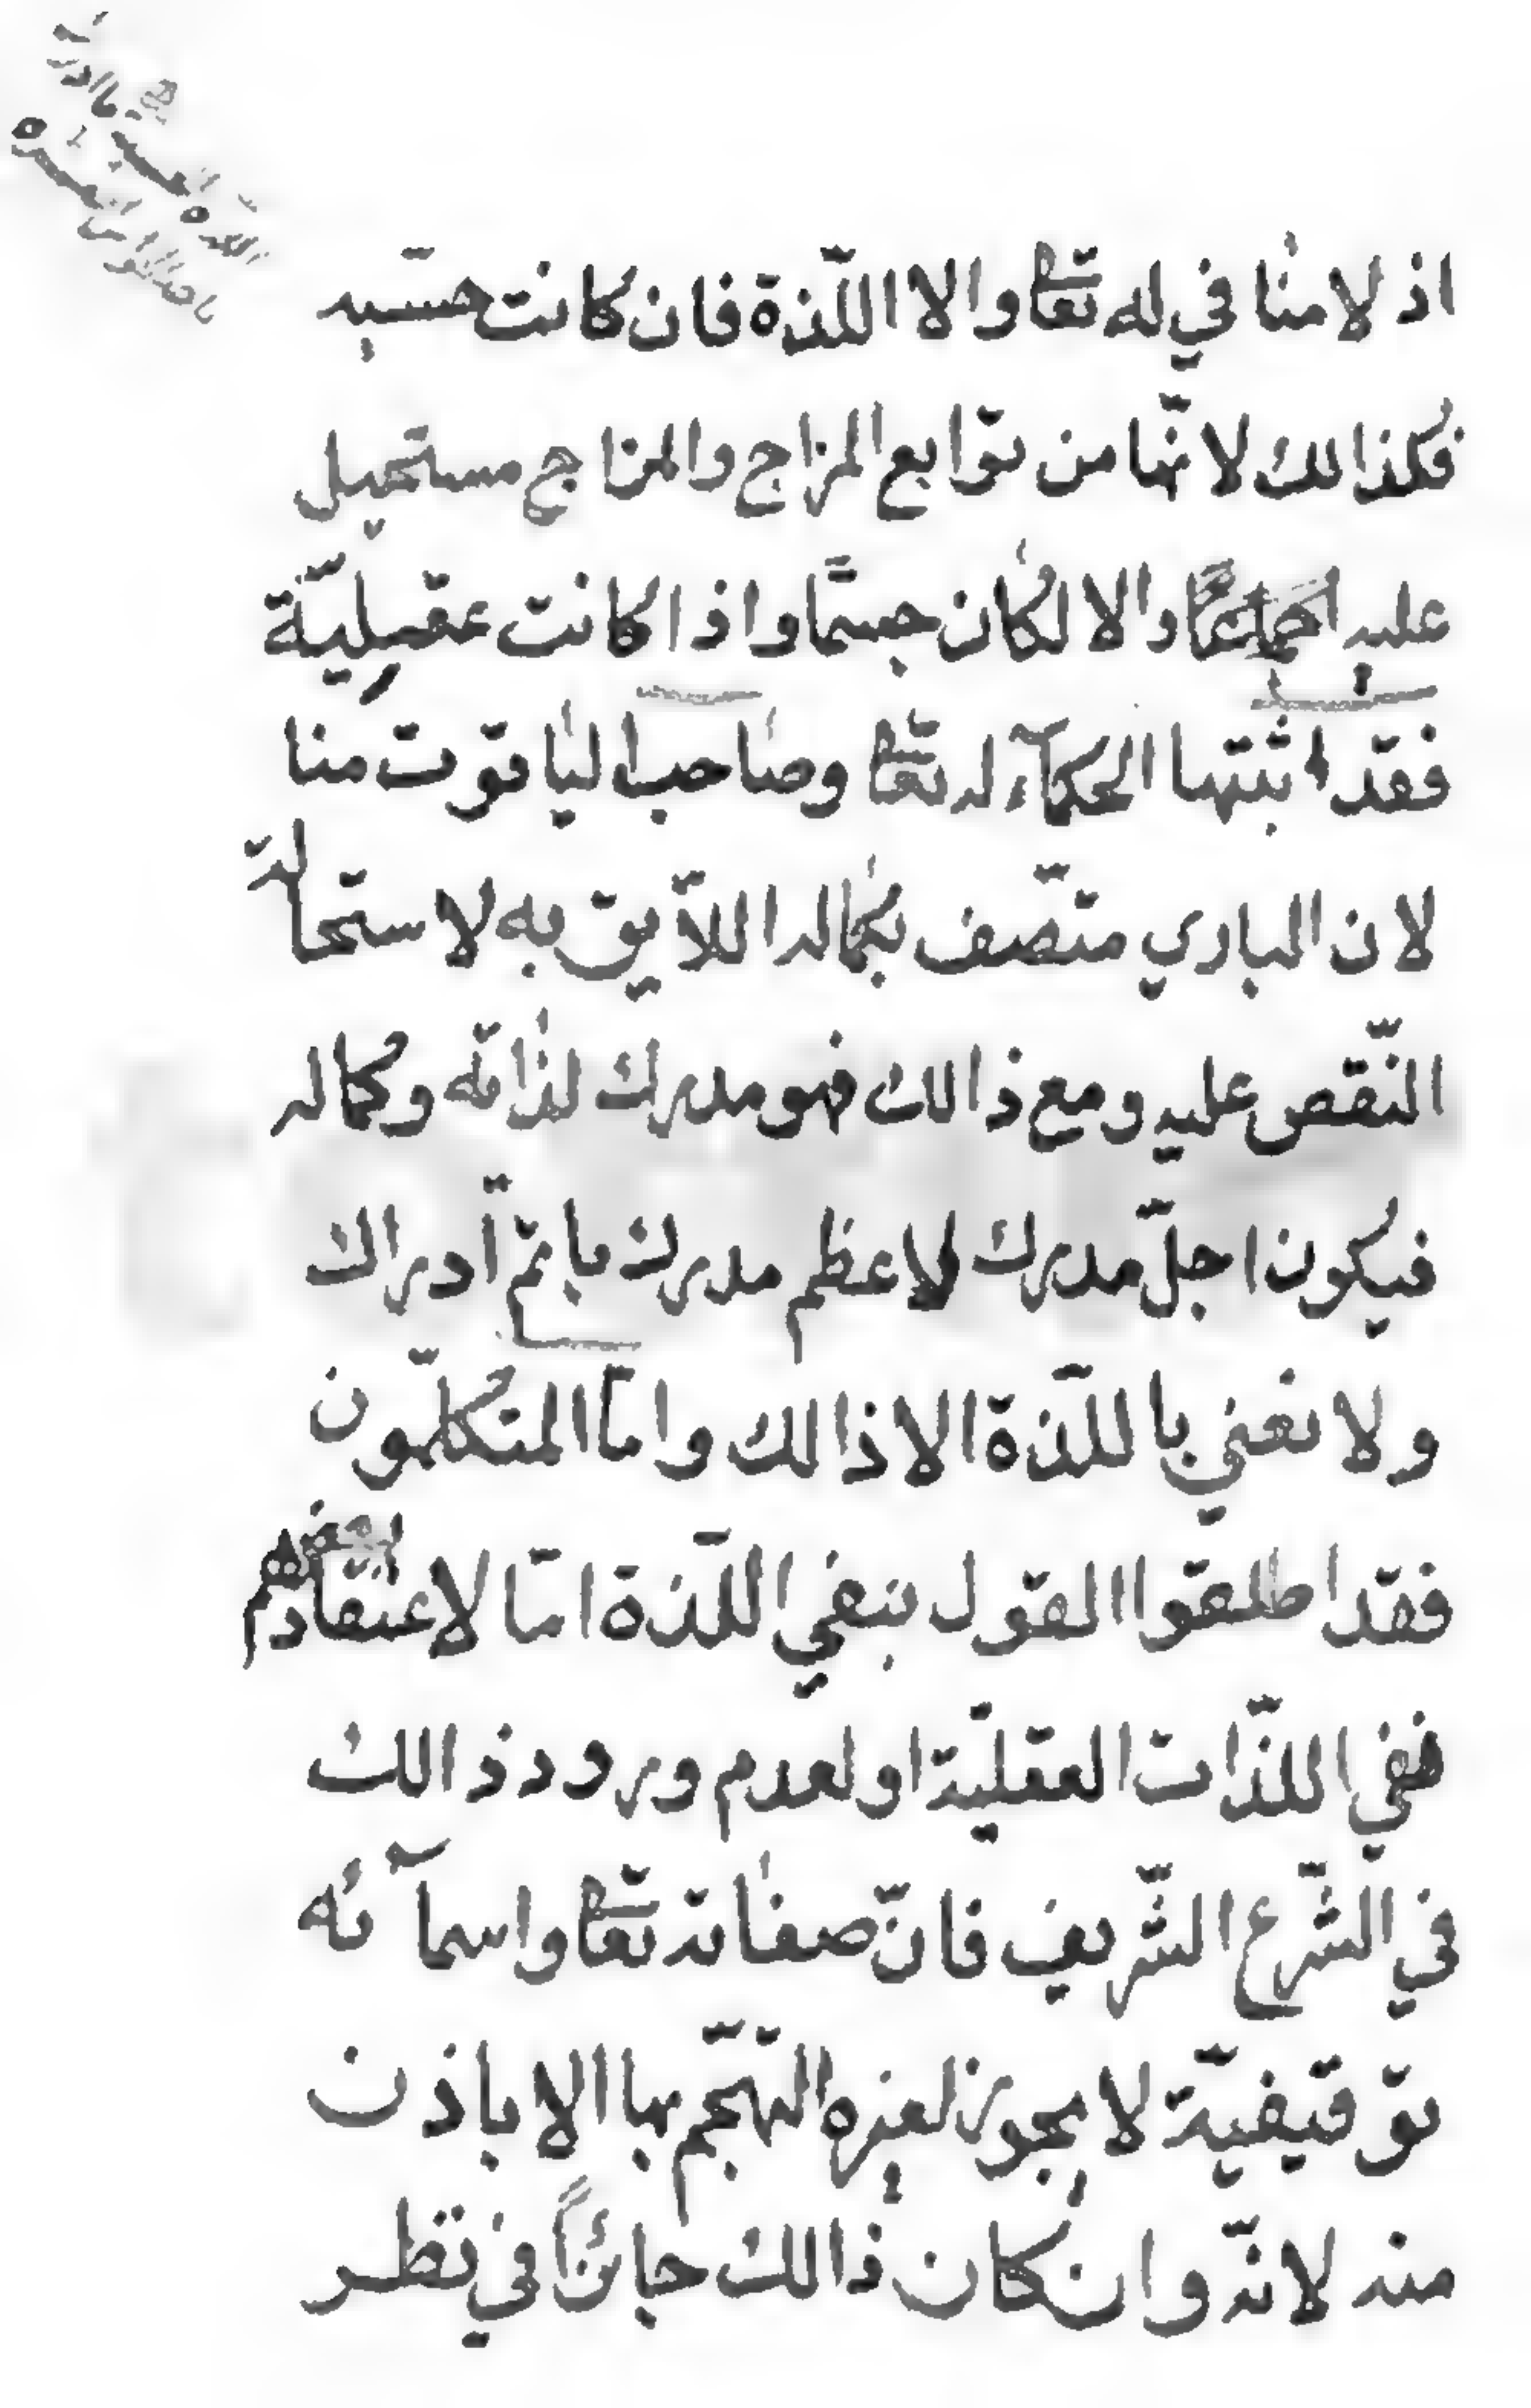 اذ لا منافي له تعا والا اللّذة فان كانت حسّيه
فكذالك لانّها من توابع المزاج والمزاج مستحيل
عليه والا لكان جسمًا واذا كانت عقليّة
فقد اثبتها الحكمآء له تعا وصاحب الياقوت منا
لان الباري متّصف بكماله اللآيق به لاستحالة
النّقص عليه ومع ذالك فهو مدرك لذاته وكماله
فيكون اجلّ مدرك لاعظم مدرك باتمّ ادراك
ولا نعني باللّذة الا ذالك وامّا المتكلّمون
فقد اطلقوا القول بنفي اللّذة امّا لاعتقادهم
نفي اللذّات العقليّة او لعدم ورود ذالك
في الشّرع الشّريف فانّ صفاته تعا واسمآئه
توقيفيّة لا يجوز لغيره التهجّم بها الا باذن
منه لانّه وان كان ذالك جائزًا في نظر